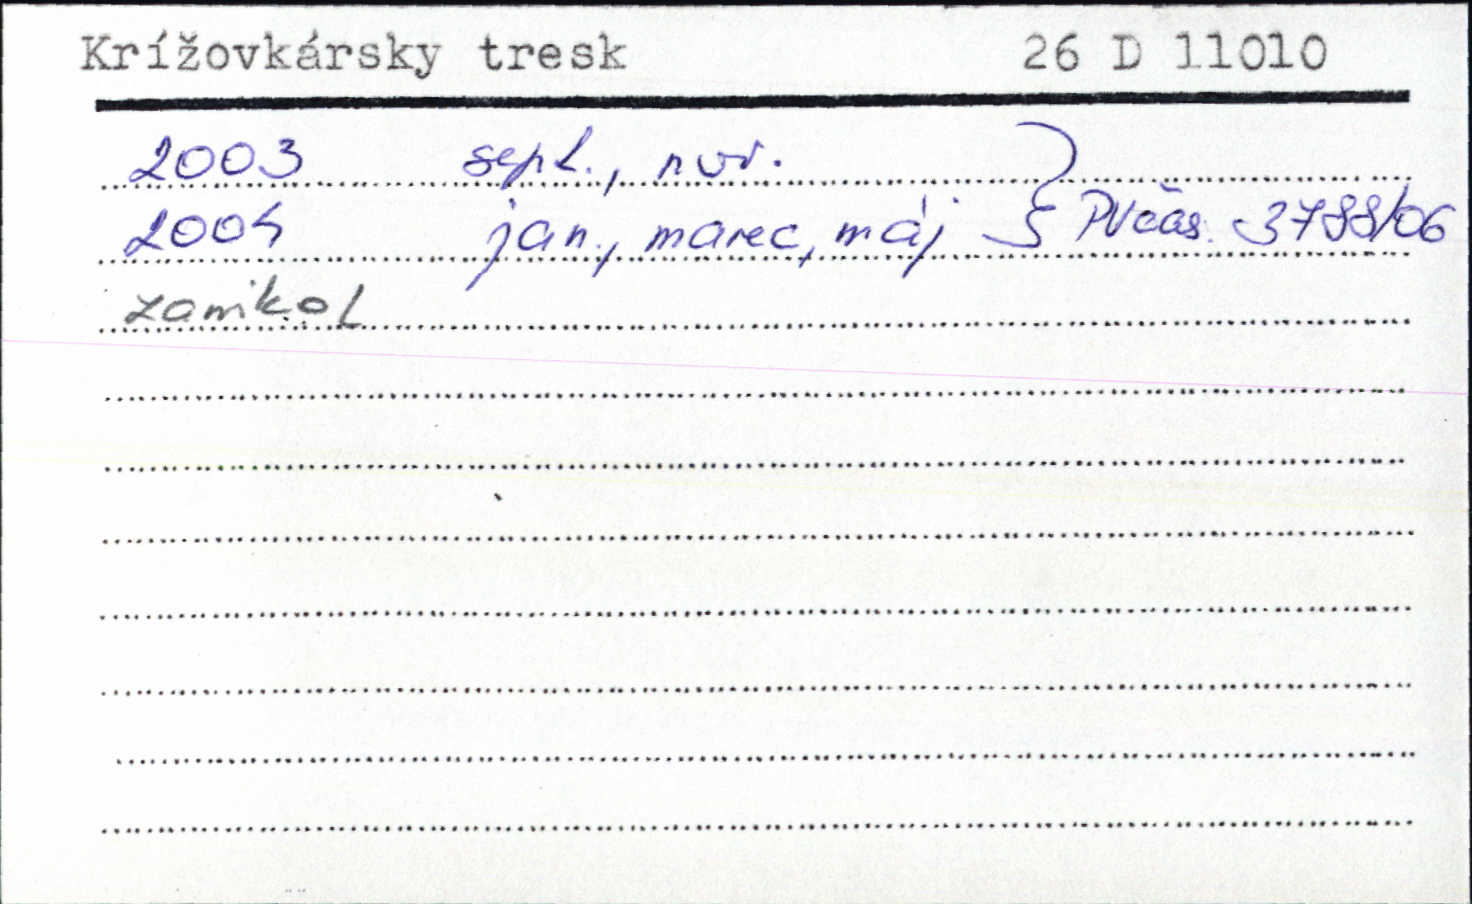 Krížovkársky tresk 26 D 11010
2003 sept., nov.
2004 jan., marec, máj } PVčas. 3788/06
zanikol